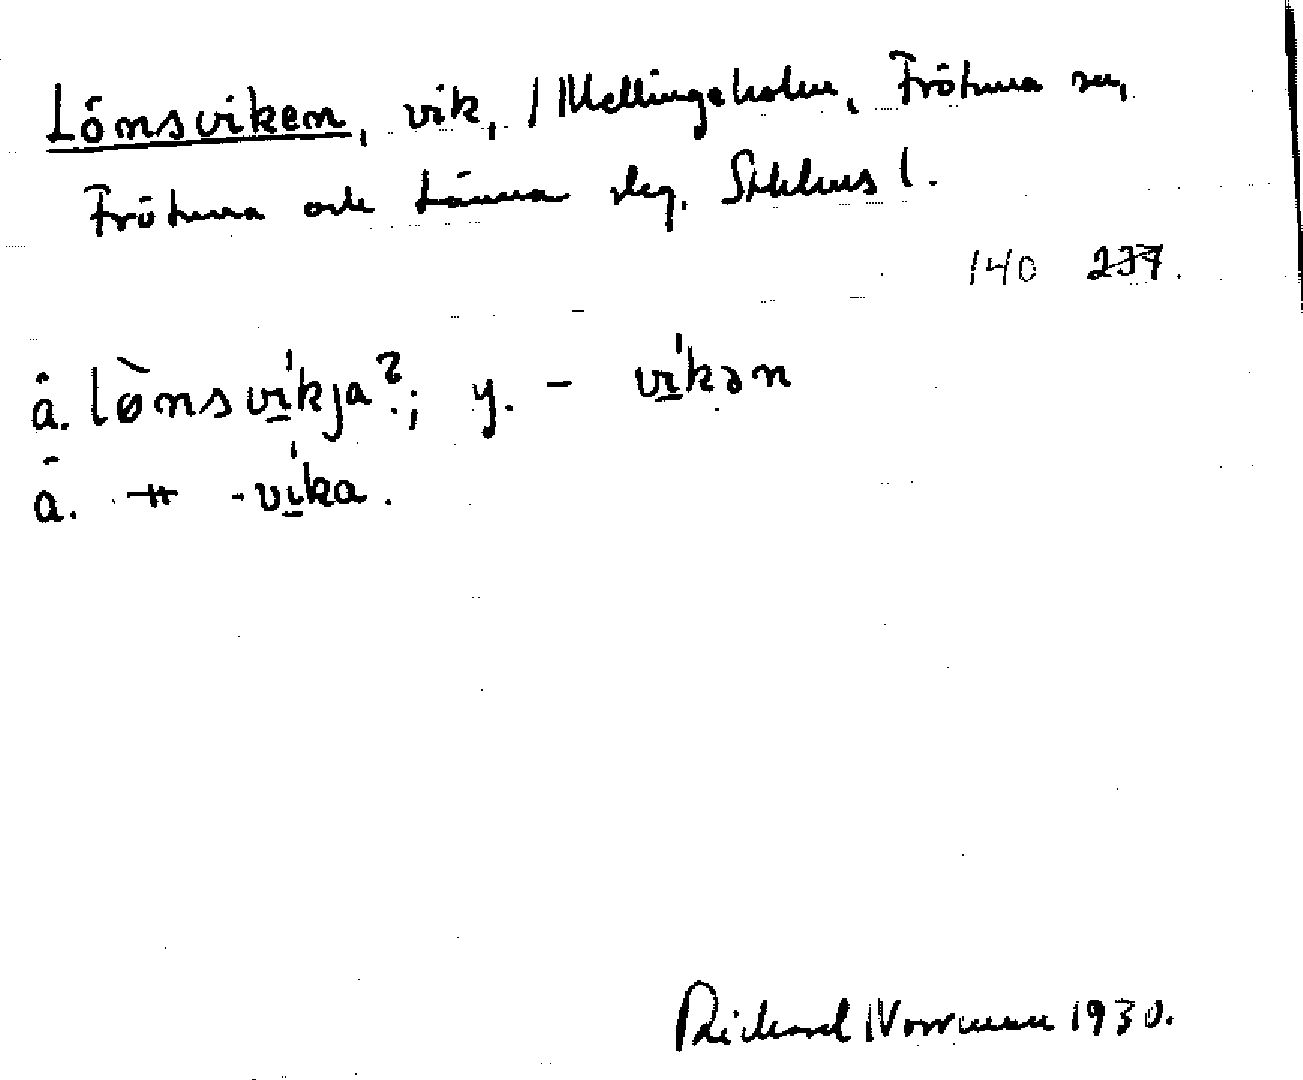 Lönsviken, vik, Mellingeholm, Frötuna sn,
Frötuna och Länna slg. Sthlms l.
140 237.
å. lø̀nsvi̲kja?; y. - vi̲kən
å. -vi̲ka.
Rickard Norrman 1930.